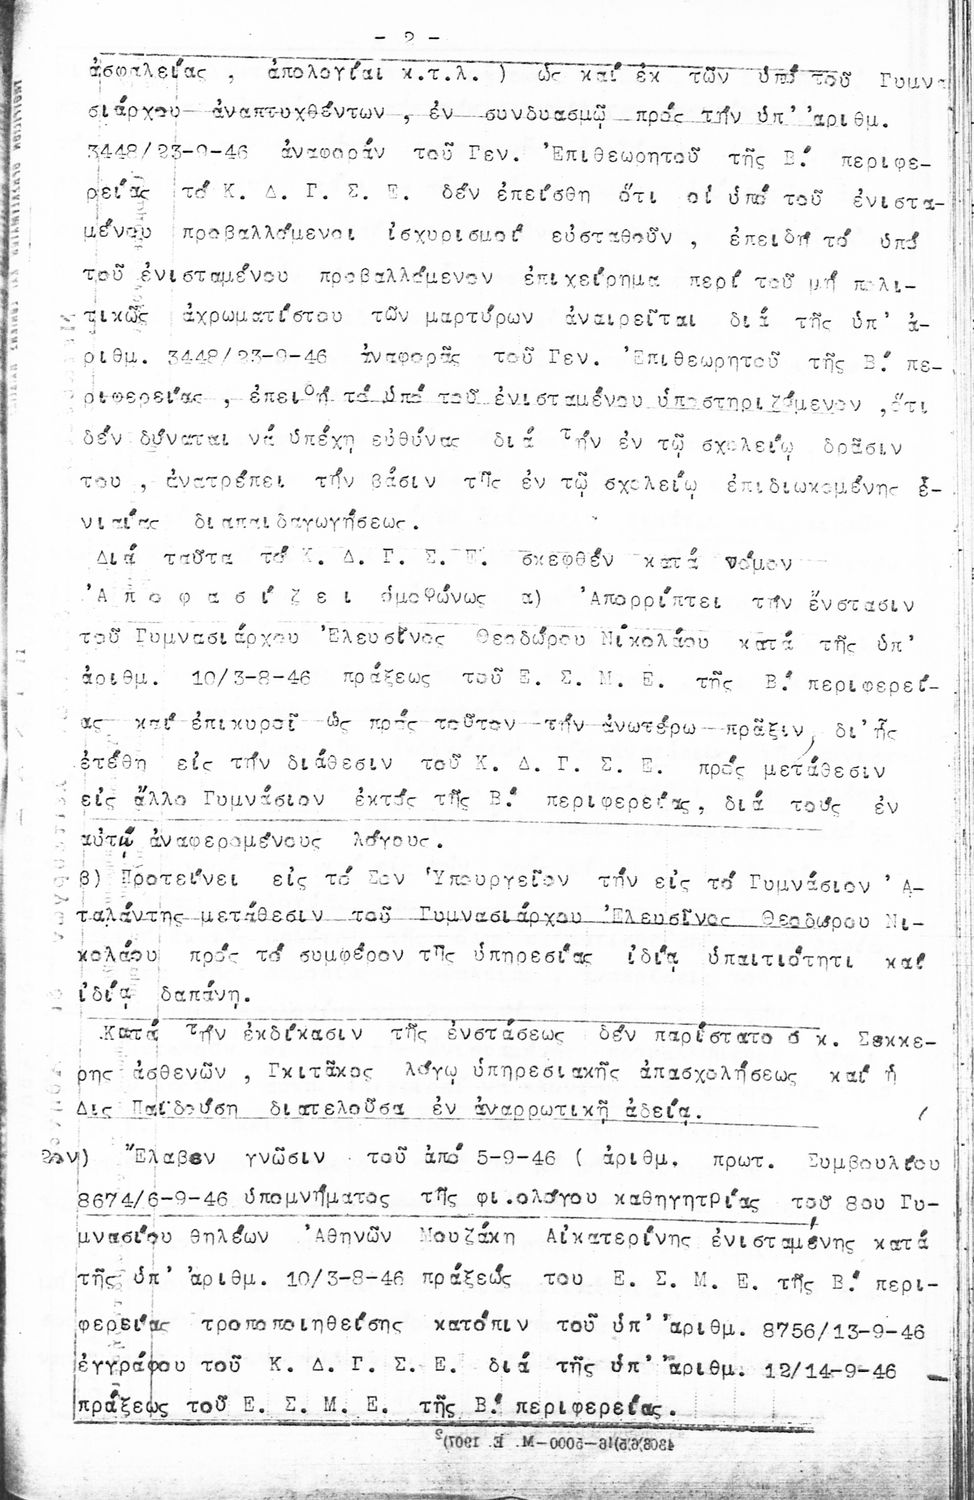 - 2 -
ἀσφαλείας , ἀπολογίαι κ.τ.λ. ) ὡς καί ἐκ τῶν ὑπό τοῦ Γυμνα
σιάρχου ἀναπτυχθέντων , ἐν συνδυασμῷ πρός τήν ὑπ' ἀριθμ.
3448/23-9-46 ἀναφοράν τοῦ Γεν. Ἐπιθεωρητοῦ τῆς Β.' περιφε-
ρείας τό Κ. Δ. Γ. Σ. Ε. δέν ἐπείσθη ὅτι οἱ ὑπό τοῦ ἐνιστα-
μένου προβαλλόμενοι ἰσχυρισμοί εὐσταθοῦν , ἐπειδή τό ὑπό
τοῦ ἐνισταμένου προβαλλόμενον ἐπιχείρημα περί τοῦ μή πολι-
τικῶς ἀχρωματίστου τῶν μαρτύρων ἀναιρεῖται διά τῆς ὑπ' ἀ-
ριθμ. 3448/23-9-46 ἀναφορᾶς τοῦ Γεν. Ἐπιθεωρητοῦ τῆς Β.' πε-
ριφερείας , ἐπειδή τό ὑπό τοῦ ἐνισταμένου ὑποστηριζόμενον ,ὅτι
δέν δύναται νά ὑπέχῃ εὐθύνας διά τήν ἐν τῷ σχολείῳ δρᾶσιν
του , ἀνατρέπει τήν βάσιν τῆς ἐν τῷ σχολείῳ ἐπιδιωκομένης ἑ-
νιαίας διαπαιδαγωγήσεως.
Διά ταῦτα τό Κ. Δ. Γ. Σ. Ε. σκεφθέν κατά νόμον
Ἀ π ο φ α σ ί ζ ε ι ὁμοφώνως α) Ἀπορρίπτει τήν ἔνστασιν
τοῦ Γυμνασιάρχου Ἐλευσῖνος Θεοδώρου Νικολάου κατά τῆς ὑπ'
ἀριθμ. 10/3-8-46 πράξεως τοῦ Ε. Σ. Μ. Ε. τῆς Β.' περιφερεί-
ας καί ἐπικυροῖ ὡς πρός τοῦτον τήν ἀνωτέρω πρᾶξιν, δι' ἧς
ἐτέθη εἰς τήν διάθεσιν τοῦ Κ. Δ. Γ. Σ. Ε. πρός μετάθεσιν
εἰς ἄλλο Γυμνάσιον ἐκτός τῆς Β.' περιφερείας, διά τούς ἐν
αὐτῷ ἀναφερομένους λόγους.
β) Προτείνει εἰς τό Σον Ὑπουργεῖον τήν εἰς τό Γυμνάσιον Ἀ-
ταλάντης μετάθεσιν τοῦ Γυμνασιάρχου Ἐλευσῖνος Θεοδώρου Νι-
κολάου πρός τό συμφέρον τῆς ὑπηρεσίας ἰδίᾳ ὑπαιτιότητι καί
ἰδίᾳ δαπάνῃ.
Κατά τήν ἐκδίκασιν τῆς ἐνστάσεως δέν παρίστατο ὁ κ. Σακκε-
ρης ἀσθενῶν , Γκιτᾶκος λόγῳ ὑπηρεσιακῆς ἀπασχολήσεως καί ἡ
Δις Παϊδούση διατελοῦσα ἐν ἀναρρωτικῇ ἀδείᾳ.
2ον) Ἔλαβεν γνῶσιν τοῦ ἀπό 5-9-46 ( ἀριθμ. πρωτ. Συμβουλίου
8674/6-9-46 ὑπομνήματος τῆς φιλολόγου καθηγητρίας τοῦ 8ου Γυ-
μνασίου θηλέων Ἀθηνῶν Μουζάκη Αἰκατερίνης ἐνισταμένης κατά
τῆς ὑπ' ἀριθμ. 10/3-8-46 πράξεώς του Ε. Σ. Μ. Ε. τῆς Β.' περι-
φερείας τροποποιηθείσης κατόπιν τοῦ ὑπ' ἀριθμ. 8756/13-9-46
ἐγγράφου τοῦ Κ. Δ. Γ. Σ. Ε. διά τῆς ὑπ' ἀριθμ. 12/14-9-46
πράξεως τοῦ Ε. Σ. Μ. Ε. τῆς Β.' περιφερείας.